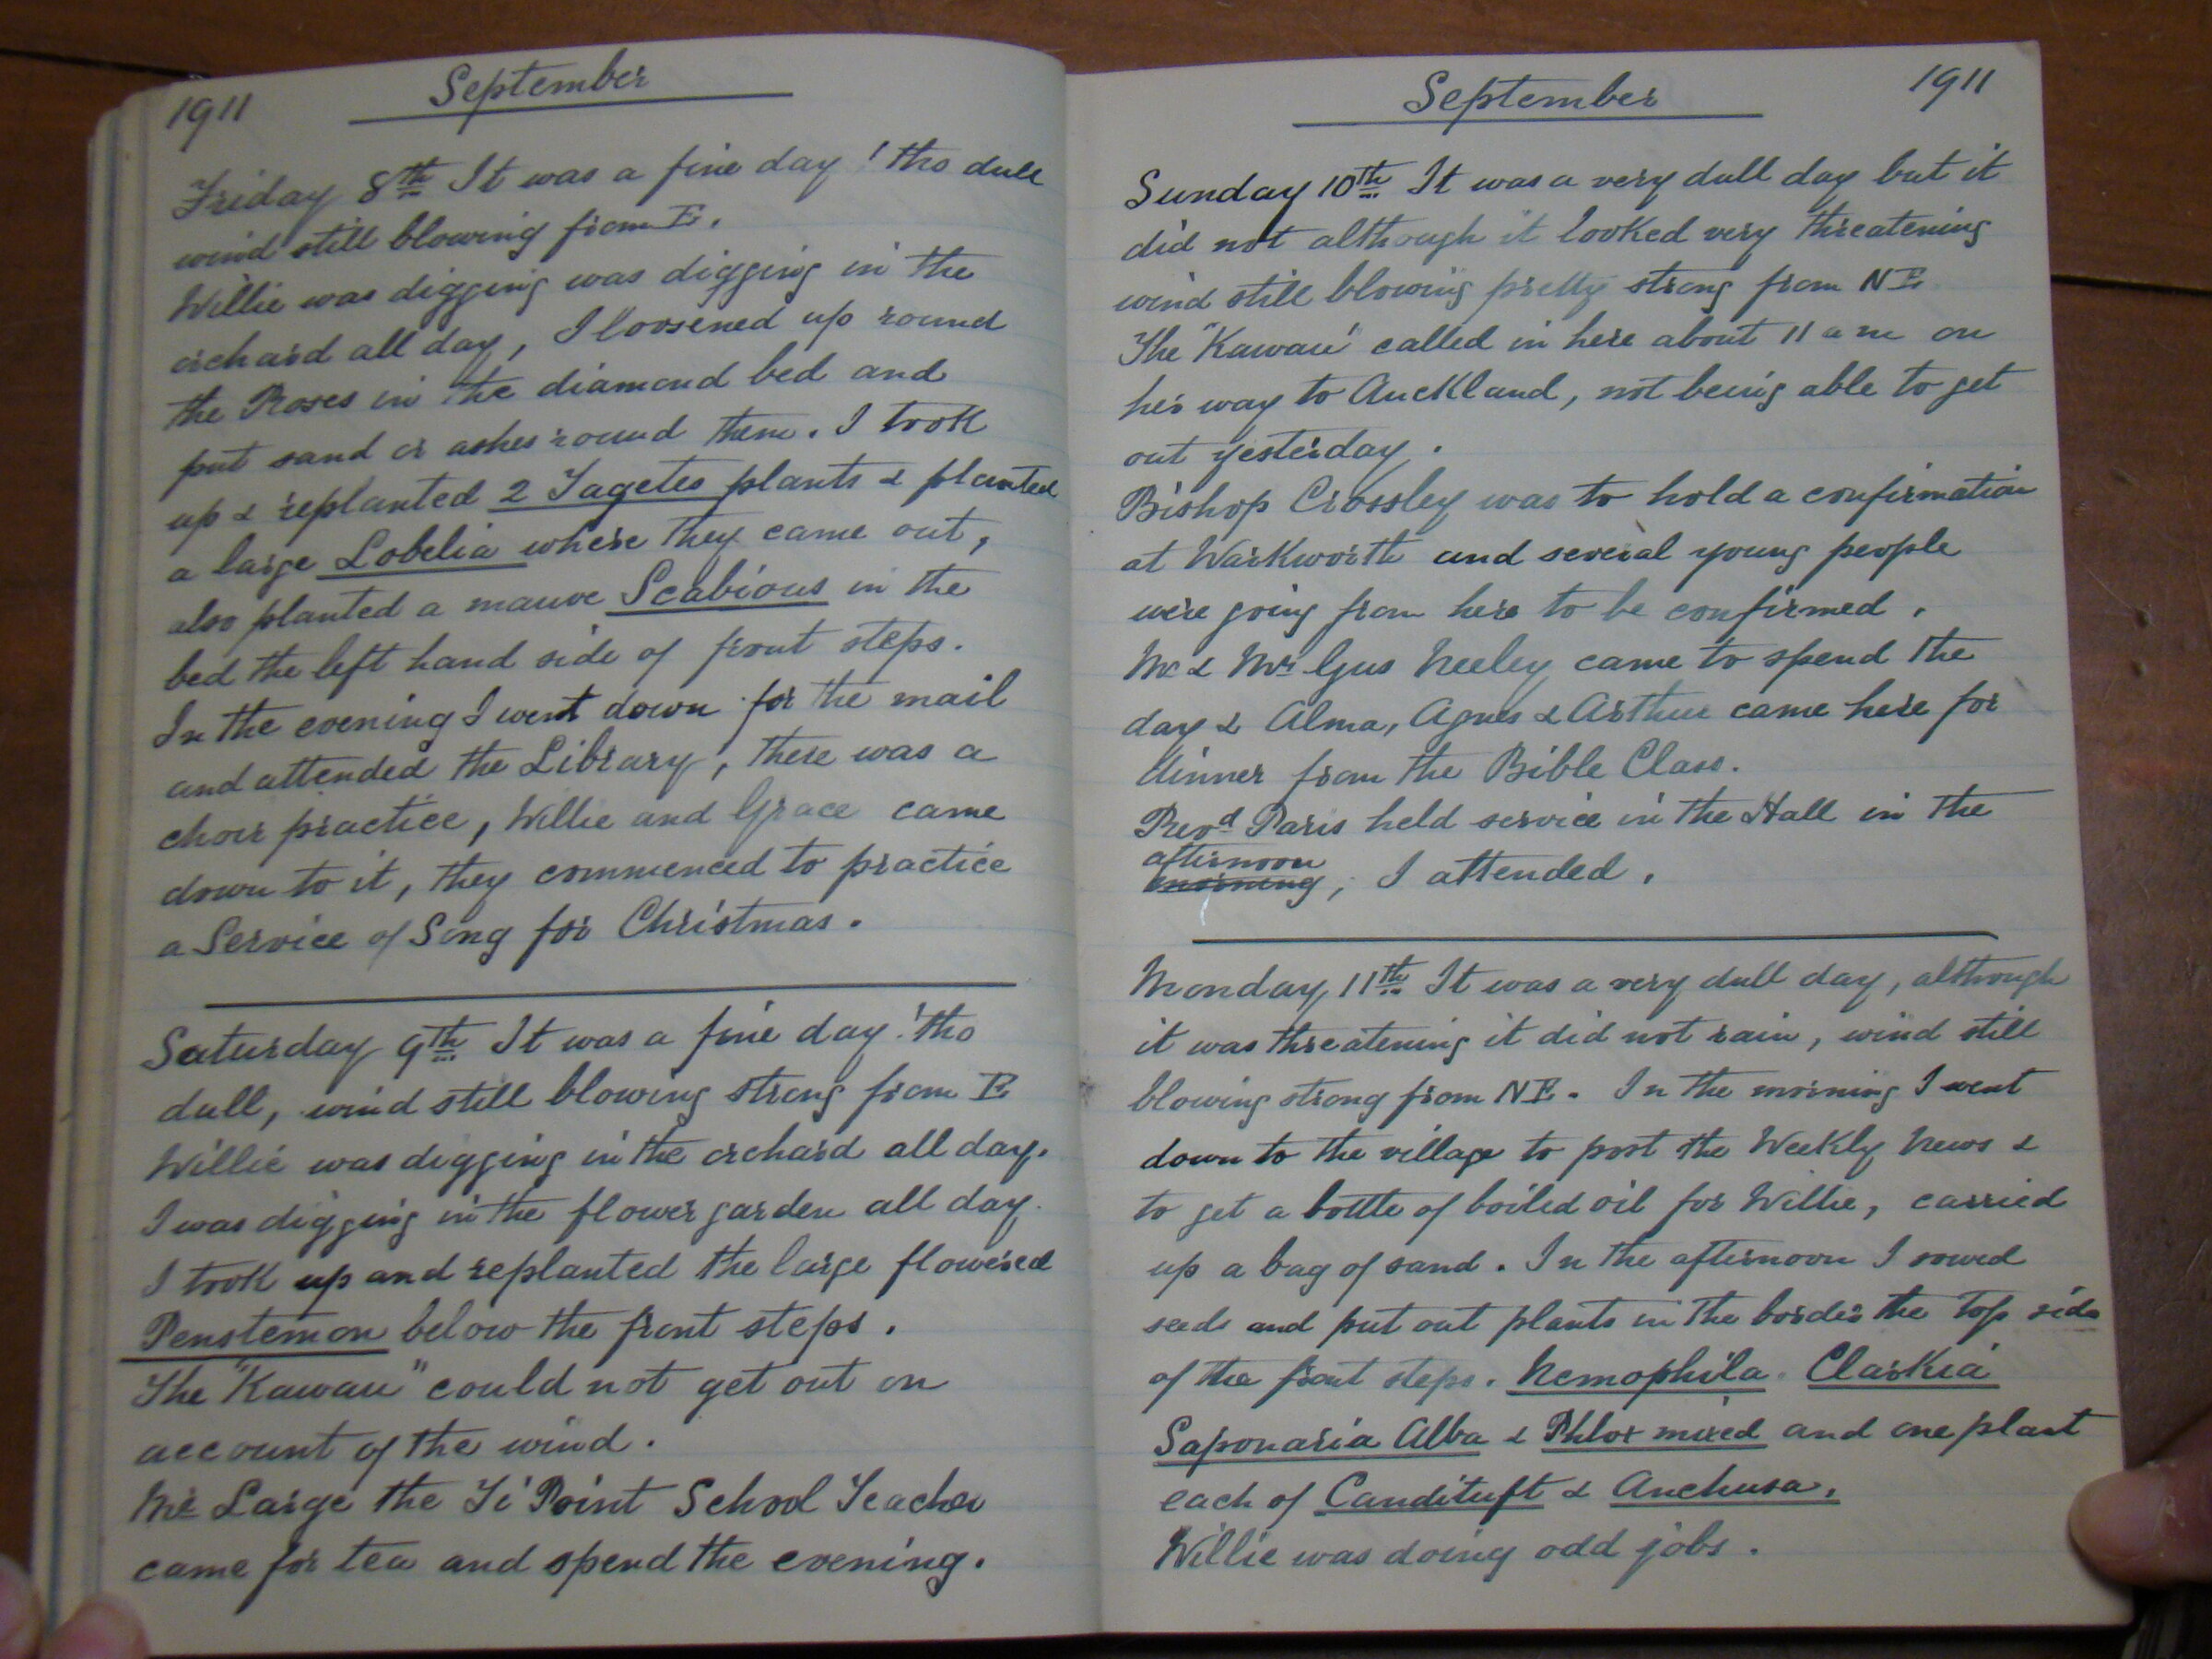 1911 September
Friday 8th It was a fine day! tho dull
wind still blowing from E.
Willie was digging was digging in the
orchard all day, I loosened up round
the Roses in the diamond bed and
put sand or ashes round them. I took
up & replanted 2 Tagetes plants & planted
a large Lobelia where they came out,
also planted a mauve Scabious in the
bed the left hand side of front steps.
In the evening I went down for the mail
and attended the Library, there was a
choir practice, Willie and Grace came
down to it, they commenced to practice
a Service of Song for Christmas.
Saturday 9th It was a fine day! tho
dull, wind still blowing strong from E
Willie was digging in the orchard all day.
I was digging in the flower garden all day.
I took up and replanted the large flowered
Penstemon below the front steps.
The "Kawau" could not get out on
account of the wind.
Mr Large the Ti Point School Teacher
came for tea and spend the evening.
September 1911
Sunday 10th It was a very dull day but it
did not although it looked very threatening
wind still blowing pretty strong from NE
The "Kawau" called in here about 11 a m on
her way to Auckland, not being able to get
out yesterday.
Bishop Crossley was to hold a confirmation
at Warkworth and several young people
were going from here to be confirmed.
Mr & Mrs Gus Neeley came to spend the
day & Alma, Agnes & Arthur came here for
dinner from the Bible Class.
Revd Paris held service in the Hall in the
afternoon
morning, I attended.
Monday 11th It was a very dull day, although
it was threatening it did not rain, wind still
blowing strong from NE. In the morning I went
down to the village to post the Weekly News &
to get a bottle of boiled oil for Willie, carried
up a bag of sand. In the afternoon I sowed
seeds and put out plants in the border the top side
of the front steps. Nemophila. Clarkia
Saponaria Alba & Phlox mixed and one plant
each of Candituft & Anchusa.
Willie was doing odd jobs.